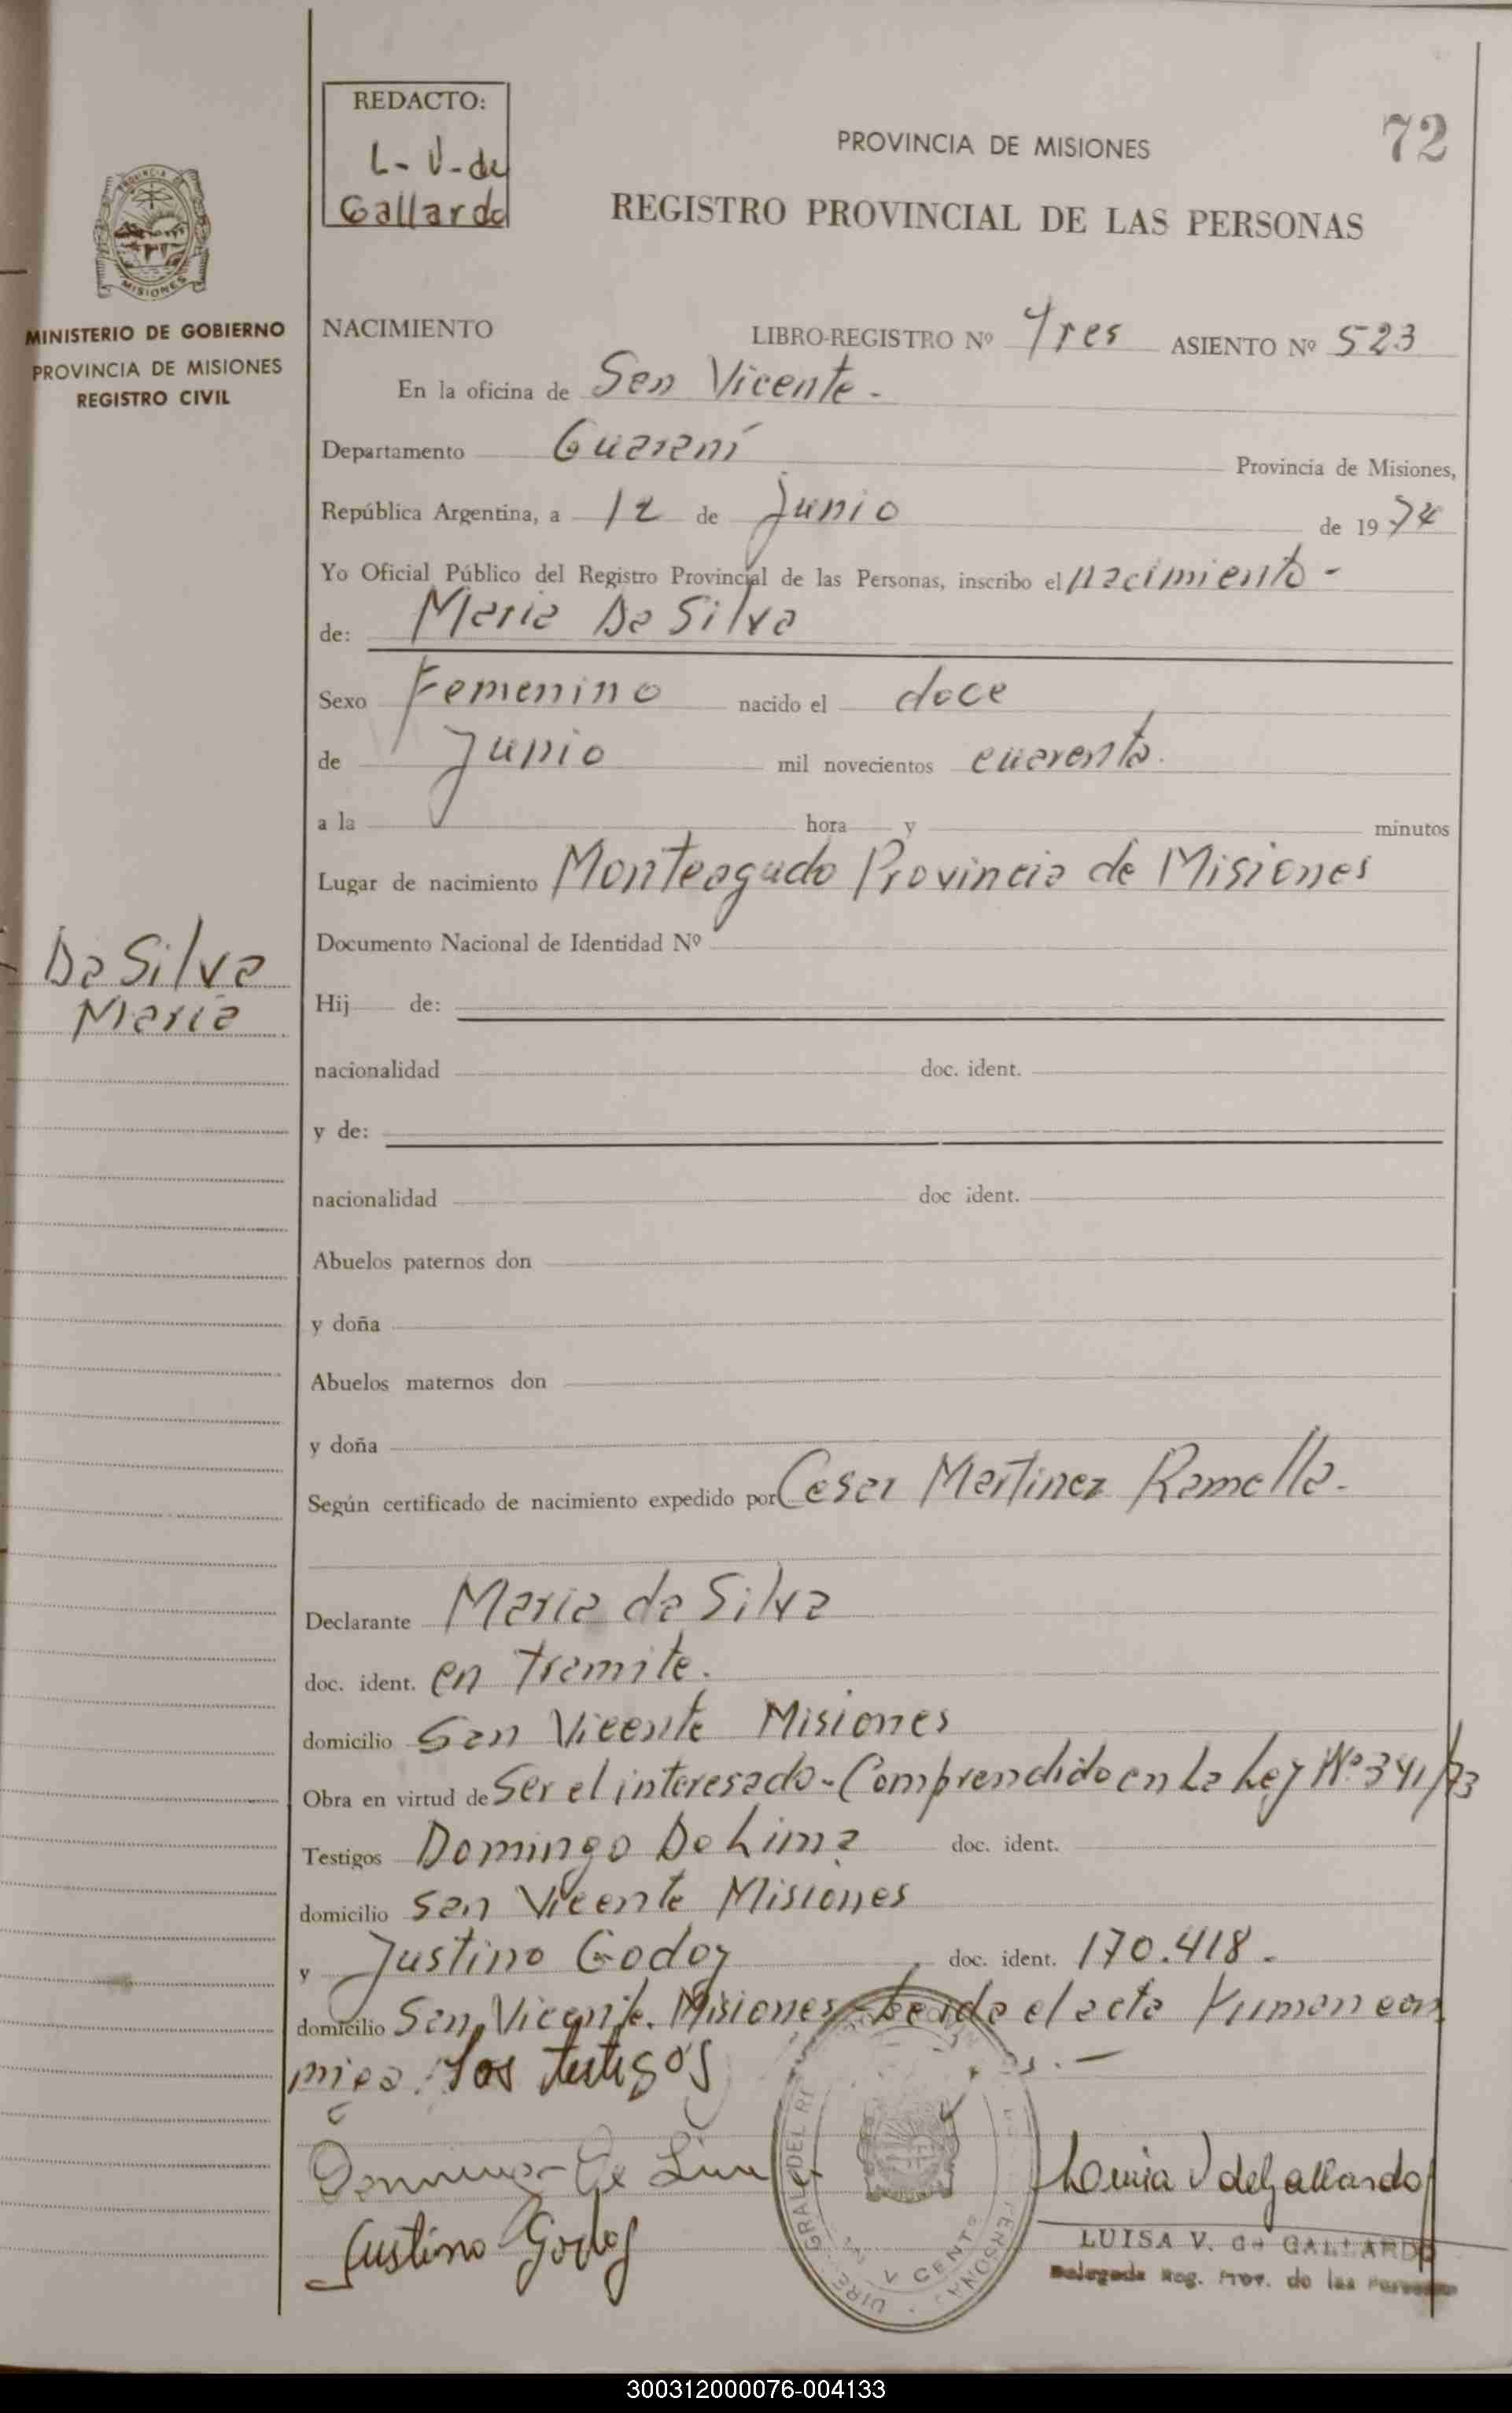 REDACTO:
L-V-de
Gallardo
72
PROVINCIA DE MISIONES
REGISTRO PROVINCIAL DE LAS PERSONAS
PROVINCIA DE
MISIONES
MINISTERIO DE GOBIERNO
PROVINCIA DE MISIONES
REGISTRO CIVIL
NACIMIENTO LIBRO-REGISTRO Nº Tres ASIENTO Nº 523
En la oficina de San Vicente -
Departamento Guaraní Provincia de Misiones,
República Argentina, a 12 de Junio de 1974
Yo Oficial Público del Registro Provincial de las Personas, inscribo el nacimiento -
de: Maria Da Silva
Sexo Femenino nacido el doce
de Junio mil novecientos cuarenta.
a la hora y minutos
Lugar de nacimiento Monteagudo Provincia de Misiones
Documento Nacional de Identidad Nº
Da Silva
Maria
Hij de:
nacionalidad doc. ident.
y de:
nacionalidad doc ident.
Abuelos paternos don
y doña
Abuelos maternos don
y doña
Según certificado de nacimiento expedido por Cesar Martinez Ramella.-
Declarante Maria da Silva
doc. ident. en tramite.
domicilio San Vicente Misiones
Obra en virtud de Ser el interesado-Comprendido en La Ley Nº 341/73
Testigos Domingo De Lima doc. ident.
domicilio San Vicente Misiones
y Justino Godoy doc. ident. 170.418.
domicilio San Vicente. Misiones-Leida el acta firman con
migo los testigos
Domingo De Lima
Justino Godoy
Luisa V de Gallardo
LUISA V. de GALLARDO
Delegada Reg. Prov. de las Personas
300312000076-004133